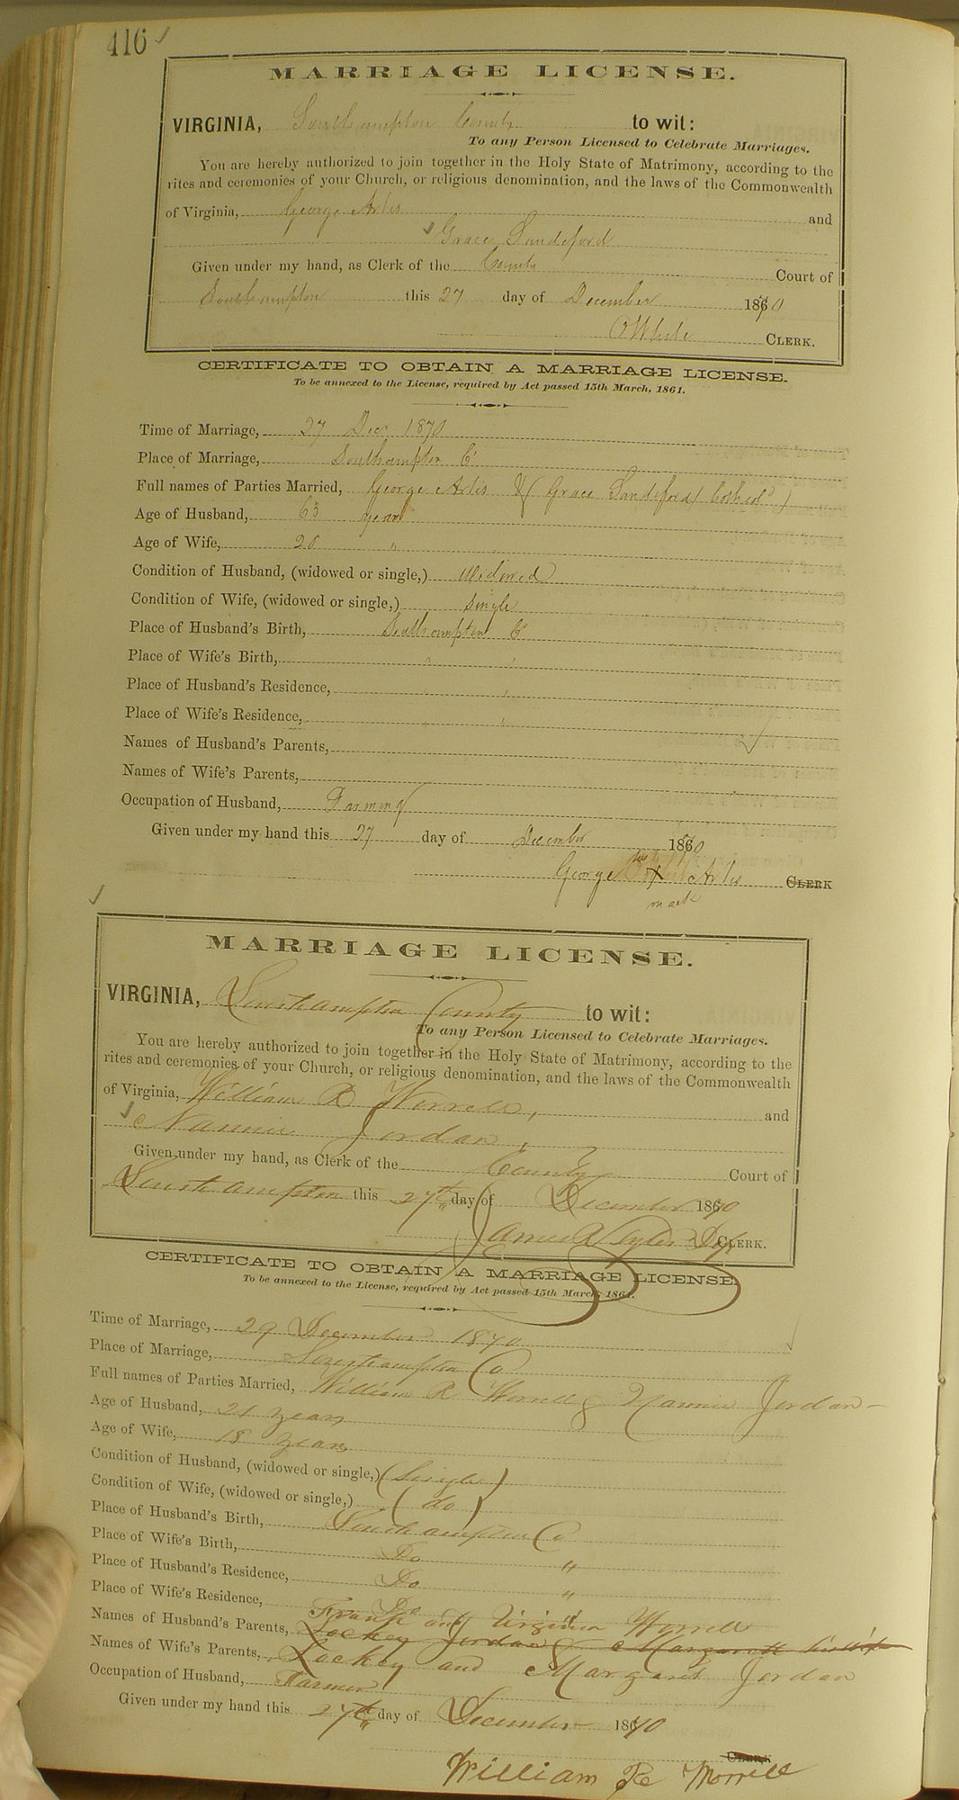 416
MARRIAGE LICENSE.
VIRGINIA, Southampton County to wit:
To any Person Licensed to Celebrate Marriages.
You are hereby authorized to join together in the Holy State of Matrimony, according to the
rites and ceremonies of your Church, or religious denomination, and the laws of the Commonwealth
of Virginia, George Artis and
Grace Sandeford
Given under my hand, as Clerk of the County Court of
Southampton this 27 day of December 1870
CLERK.
CERTIFICATE TO OBTAIN A MARRIAGE LICENSE.
To be annexed to the License, required by Act passed 15th March, 1861.
Time of Marriage, 27 Dec 1870
Place of Marriage, Southampton Co
Full names of Parties Married, George Artis & (Grace Sandeford) both cold)
Age of Husband, 63 years
Age of Wife, 20 "
Condition of Husband, (widowed or single,) widowed
Condition of Wife, (widowed or single,) single
Place of Husband's Birth, Southampton Co
Place of Wife's Birth, " "
Place of Husband's Residence, "
Place of Wife's Residence, " "
Names of Husband's Parents,
Names of Wife's Parents,
Occupation of Husband, Farming
Given under my hand this 27 day of December 1870
George his X Artis CLERK
mark
MARRIAGE LICENSE.
VIRGINIA, Southampton County to wit:
To any Person Licensed to Celebrate Marriages.
You are hereby authorized to join together in the Holy State of Matrimony, according to the
rites and ceremonies of your Church, or religious denomination, and the laws of the Commonwealth
of Virginia, William R Worrell, and
Nannie Jordan,
Given under my hand, as Clerk of the County Court of
Southampton this 27th day of December 1870
James CLERK.
CERTIFICATE TO OBTAIN A MARRIAGE LICENSE.
To be annexed to the License, required by Act passed 15th March, 1861.
Time of Marriage, 29 December 1870
Place of Marriage, Southampton Co
Full names of Parties Married, William R Worrell & Nannie Jordan
Age of Husband, 21 years
Age of Wife, 18 years
Condition of Husband, (widowed or single,) (Single)
Condition of Wife, (widowed or single,) (do)
Place of Husband's Birth, Southampton Co
Place of Wife's Birth, Do "
Place of Husband's Residence, Do "
Place of Wife's Residence, Do "
Frank and Virginia Worrell
Names of Husband's Parents, Lockey Jordan & Margarett his wife
Names of Wife's Parents, Lockey and Margaret Jordan
Occupation of Husband, Farmer
Given under my hand this 27th day of December 1870
CLERK
William R Worrell